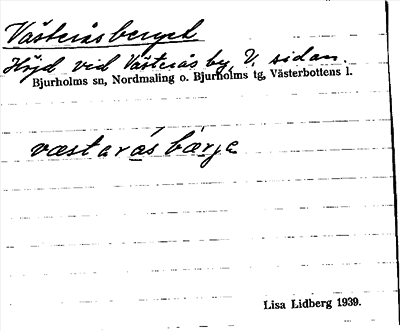 Västeråsberget
Höjd vid Västerås by, V. sidan.
Bjurholms sn, Nordmaling o. Bjurholms tg, Västerbottens l.
væstarås bærje
Lisa Lidberg 1939.